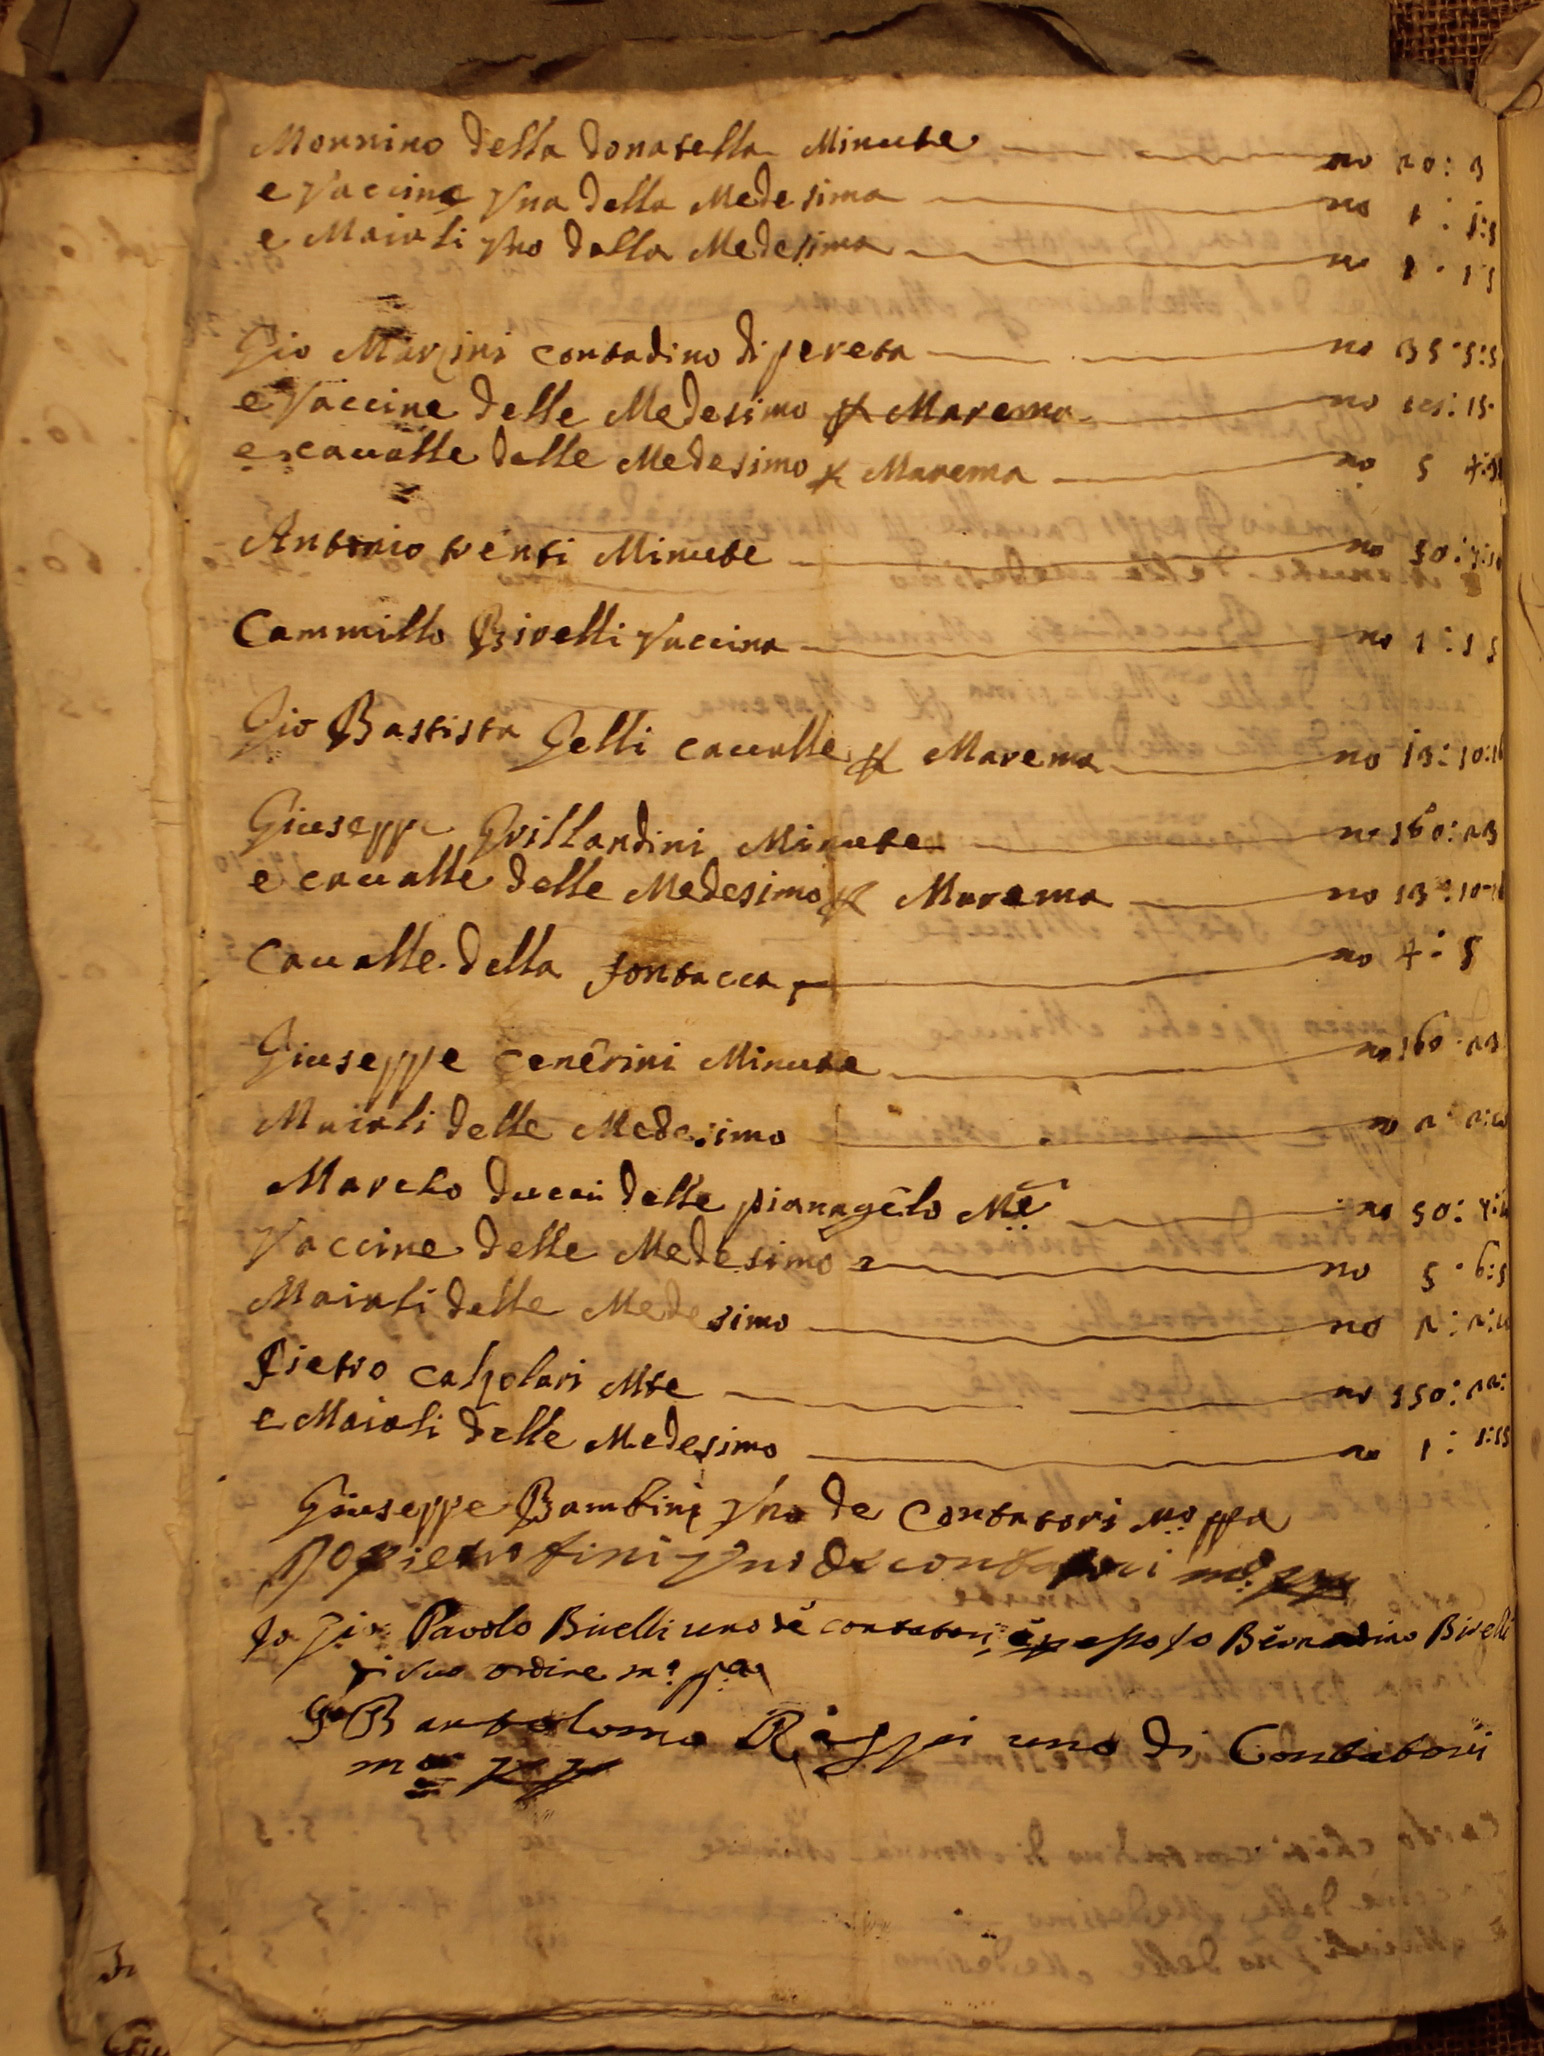 Monnino della donatella Minute no 20: 3
e Vaccine Vna della Medesima no 1: 1:5
e Maiali Vno della Medesima no 1 - 1 5
Gio Marzini contadino di pereta no 35 - 5:5
e Vaccine delle Medesimo p Marema no 15
e cavalle delle Medesimo p Marema no 5 4
Antonio venti Minute no 50: 7:10
Cammillo Birelli Vaccina no 1: 1 5
Gio Battista Gelli cavalle p Marema no 13: 10:16
Giuseppe Grillandini Minute no 160: 23
e cavalle delle Medesimo p Marema no 13: 10-16
Cavalle della fontacca no 4: 5
Giuseppe Cenerini Minute no 160 - 23
Maiali delle Medesimo no 2 2:10
Marcho ducci delle pianagelo Mte no 50: 7:10
Vaccine delle Medesimo no 5 - 6:5
Maiali delle Medesimo no 2: 2:10
Pietro calzolari Mte no 150: 22:
e Maiali delle Medesimo no 1: 1:15
Giuseppe Bambini Vno de Contatori mo ppa
Jo pietro fini Vno de contatori mo
Jo Gio Pavolo Birelli uno de contatori Bernadino Birelli
di suo ordine mo ppa
Gio Bartolomo uno di Contatori
mo pp